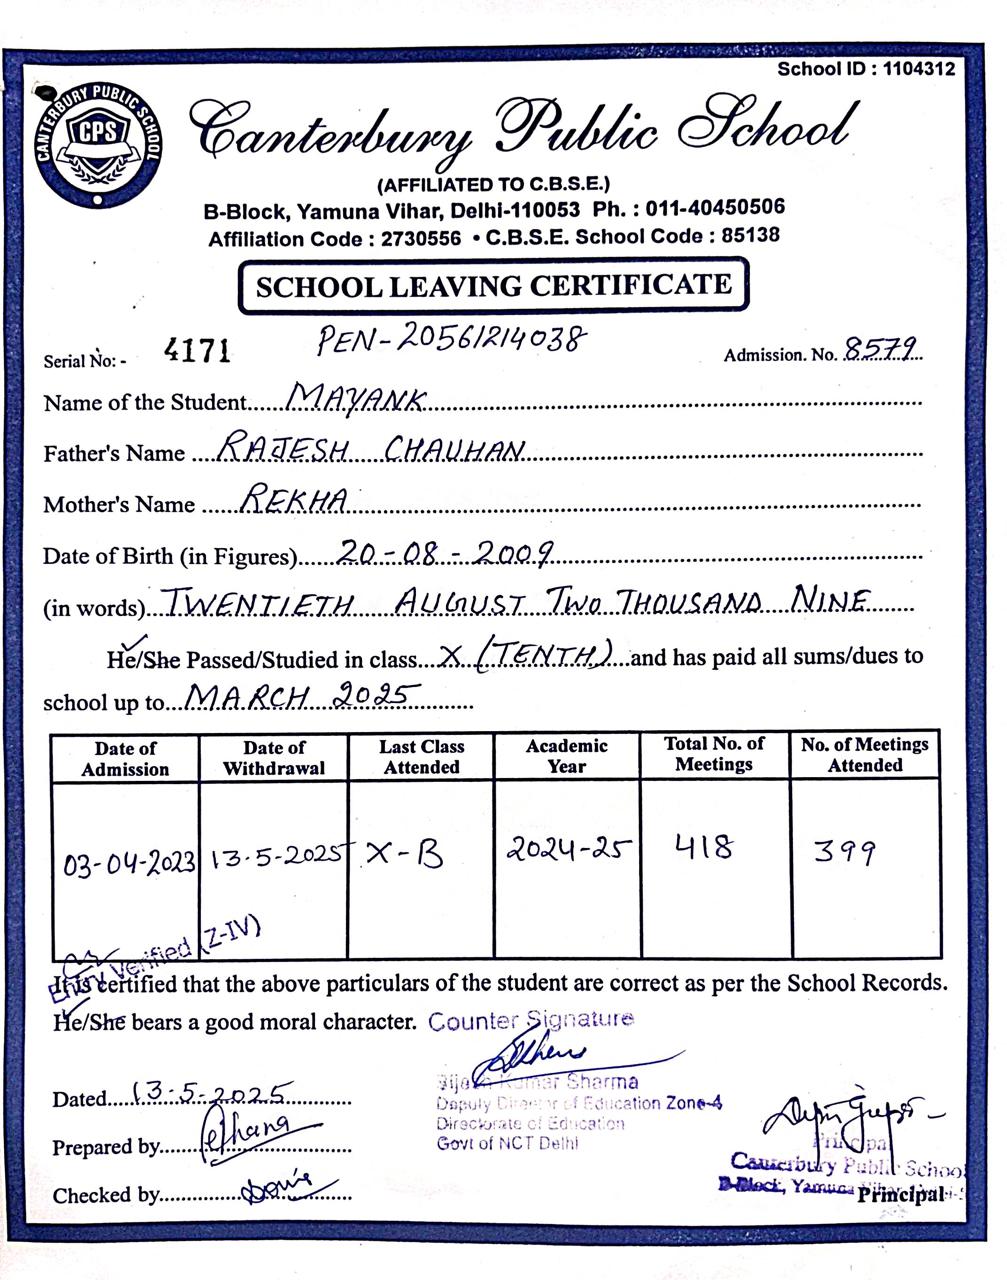 School ID : 1104312
CANTERBURY PUBLIC SCHOOL
CPS
Canterbury Public School
(AFFILIATED TO C.B.S.E.)
B-Block, Yamuna Vihar, Delhi-110053 Ph. : 011-40450506
Affiliation Code : 2730556 • C.B.S.E. School Code : 85138
SCHOOL LEAVING CERTIFICATE
PEN-20561214038
Serial No: - 4171 Admission. No. 8579
Name of the Student......MAYANK
Father's Name ....RAJESH CHAUHAN
Mother's Name ......REKHA
Date of Birth (in Figures)......20-08-2009
(in words)..TWENTIETH AUGUST TWO THOUSAND NINE
He/She Passed/Studied in class...X (TENTH)...and has paid all sums/dues to
school up to...MARCH 2025
Date of Admission Date of Withdrawal Last Class Attended Academic Year Total No. of Meetings No. of Meetings Attended
03-04-2023 13-5-2025 X-B 2024-25 418 399
Entry Verified (Z-IV)
It is certified that the above particulars of the student are correct as per the School Records.
He/She bears a good moral character. Counter Signature
Kumar Sharma
Dated....13-5-2025
Deputy Director of Education Zone-4
Directorate of Education
Govt of NCT Delhi
Prepared by
Principal
Canterbury Public School
Checked by
B-Block, Yamuna Principal